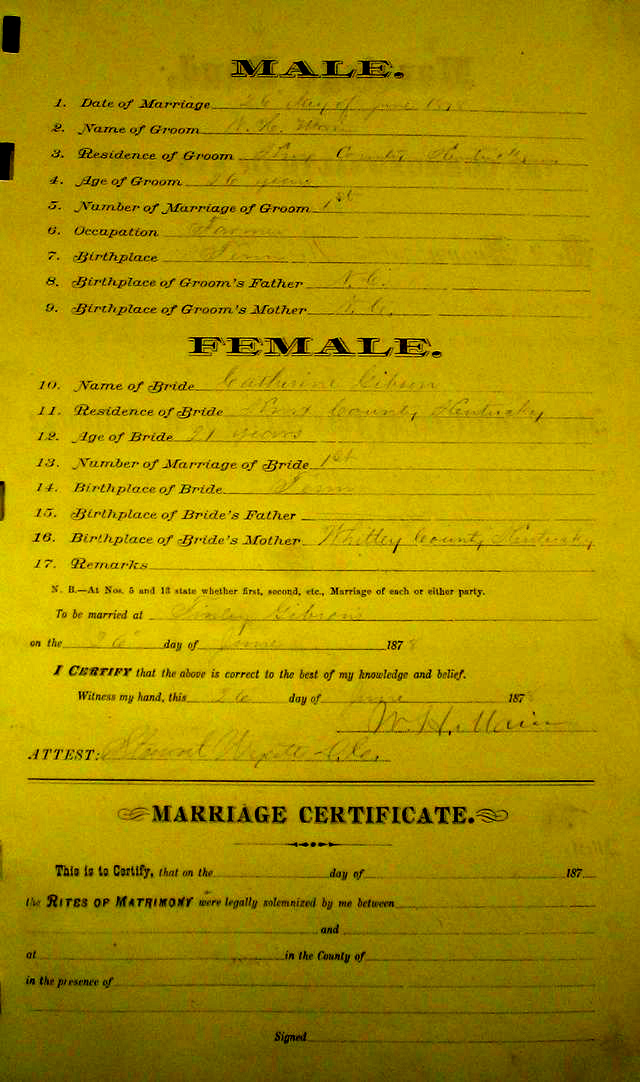 MALE.
1. Date of Marriage 26 day of June 1878
2. Name of Groom W. H.
3. Residence of Groom Knox County Kentucky
4. Age of Groom 26 years
5. Number of Marriage of Groom 1st
6. Occupation Farmer
7. Birthplace Tenn
8. Birthplace of Groom's Father N. C.
9. Birthplace of Groom's Mother N. C.
FEMALE.
10. Name of Bride Catherine Gibson
11. Residence of Bride Knox County Kentucky
12. Age of Bride 21 years
13. Number of Marriage of Bride 1st
14. Birthplace of Bride Tenn
15. Birthplace of Bride's Father
16. Birthplace of Bride's Mother Whitley County Kentucky
17. Remarks
N. B.—At Nos. 5 and 13 state whether first, second, etc., Marriage of each or either party.
To be married at Gibsons
on the 26 day of June 1878
I CERTIFY that the above is correct to the best of my knowledge and belief.
Witness my hand, this 26 day of June 1878
W. H.
ATTEST:
MARRIAGE CERTIFICATE.
This is to Certify, that on the day of 187
the RITES OF MATRIMONY were legally solemnized by me between
and
at in the County of
in the presence of
Signed